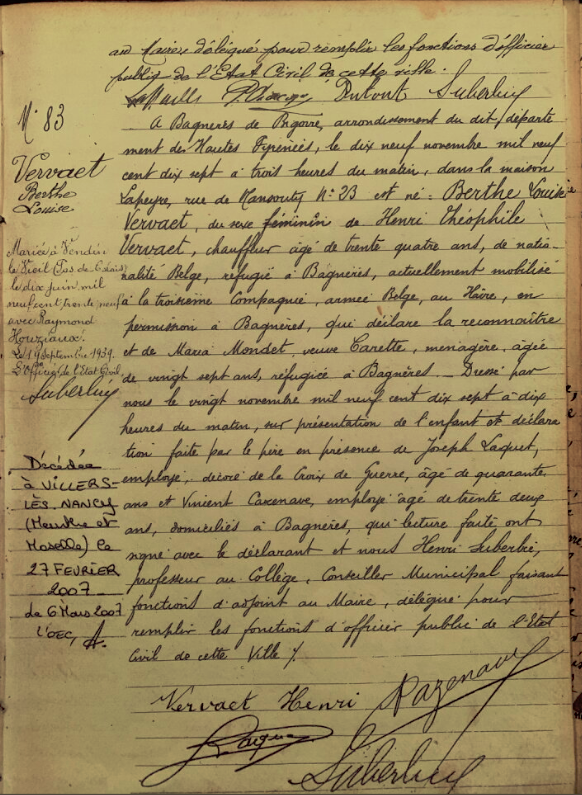 au Maire, délégué pour remplir les fonctions d'officier
public de l'Etat Civil de cette ville.
Suberbie
N° 83
Vervaet
Berthe
Louise
Mariée à Vendin
le Vieil (Pas de Calais)
le dix juin mil
neuf cent trente neuf
avec Raymond
Houziaux.
Le 19 Septembre 1939.
L'Officier de l'Etat Civil,
Suberbie
Décédée
à VILLERS-
LÈS-NANCY
(Meurthe et
Moselle) le
27 FEVRIER
2007
de 6 Mars 2007
L'OEC,
A Bagnères de Bigorre, arrondissement du dit, départe
ment des Hautes Pyrénées, le dix neuf novembre mil neuf
cent dix sept à trois heures du matin, dans la maison
Lapeyre, rue de Mansouty N° 23 est né : Berthe Louise
Vervaet, du sexe féminin de Henri Théophile
Vervaet, chauffeur âgé de trente quatre ans, de natio
nalité Belge, réfugié à Bagnères, actuellement mobilisé
à la troisième Compagnie, armée Belge, au Hâvre, en
permission à Bagnères, qui déclare la reconnaître
et de Maria Mondet, veuve Carette, ménagère, âgée
de vingt sept ans, réfugiée à Bagnères. Dressé par
nous le vingt novembre mil neuf cent dix sept à dix
heures du matin, sur présentation de l'enfant et déclara
tion faite par le père en présence de Joseph Laquet,
employé, décoré de la Croix de Guerre, âgé de quarante
ans et Vincent Cazenave, employé âgé de trente deux
ans, domiciliés à Bagnères, qui lecture faite, ont
signé avec le déclarant et nous Henri Suberbie,
professeur au Collège, Conseiller Municipal faisant
fonctions d'adjoint au Maire, délégué pour
remplir les fonctions d'officier public de l'Etat
Civil de cette Ville /.
Vervaet Henri Cazenave
Laquet
Suberbie